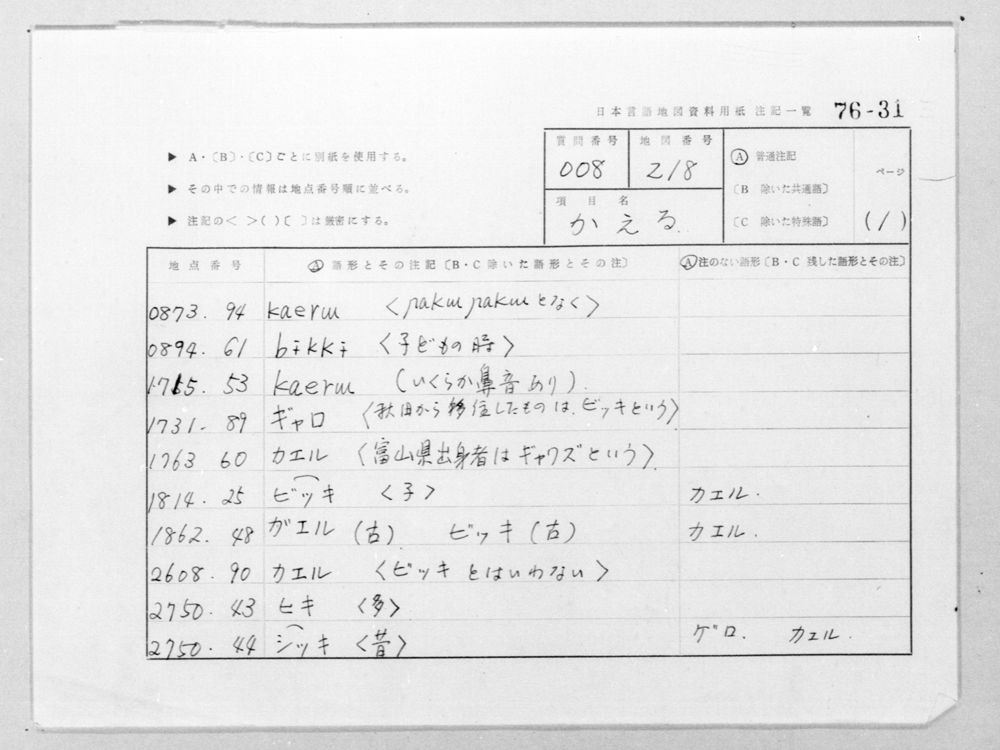 日本言語地図資料用紙 注記一覧 76-31
▶ A・〔B〕・〔C〕ごとに別紙を使用する。
▶ その中での情報は地点番号順に並べる。
▶ 注記の< >( )〔 〕は厳密にする。
質問番号 地図番号
008 218
項目名
かえる
Ⓐ 普通注記
〔B 除いた共通語〕
〔C 除いた特殊語〕
ページ
(1)
地点番号 Ⓐ 語形とその注記〔B・C 除いた語形とその注〕 Ⓐ注のない語形〔B・C 残した語形とその注〕
0873. 94 kaerɯ <pakɯ pakɯとなく>
0894. 61 bɨkkɨ <子どもの時>
1715. 53 kaerɯ (いくらか鼻音あり).
1731. 89 ギャロ <秋田から移住したものは、ビッキという>
1763 60 カエル <富山県出身者はギャワズという>
1814. 25 ビッキ <子> カエル.
1862. 48 ガエル (古) ビッキ (古) カエル.
2608. 90 カエル <ビッキとはいわない>
2750. 43 ヒキ <多>
2750. 44 シッキ <昔> ゲロ. カエル.